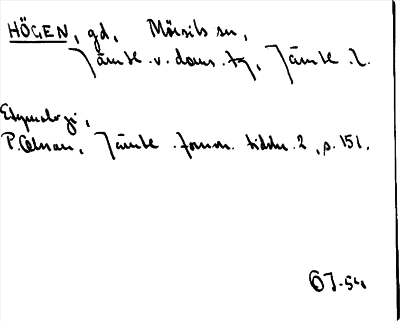 HÖGEN, gd, Mörsils sn,
Jämtl. v. doms. tg, Jämtl. l.
Etymologi,
P. Olsson, Jämtl. fornm. tidskr. 2, s. 151.
OJ-54